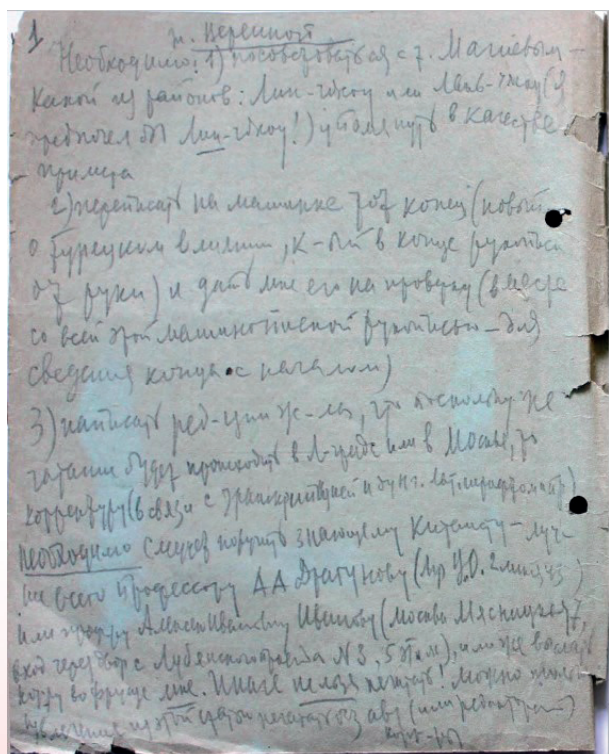 1
Необходимо: 1) посоветоваться с т. Масиевым –
какой из районов: Лин-чжоу или Лань-чжоу (я
предпочел бы Лин-чжоу!) упомянуть в качестве
примера
2) переписать на машинке тот конец (новый
о турецком влиянии, к-ый в конце рукописи
от руки) и дать мне его на проверку (вместе
со всей этой машинописной рукописью – для
сведения конца с началом)
3) написать ред-ции ж-ла, что поскольку пе-
чатание будет происходить в Л-граде или в Москве, то
корректуру (в связи с транскрипцией и дунг. лат.
необходимо поручить знающему китаисту – луч-
ше всего профессору АА Драгунову
или профру Алексею Ивановичу Иванову (Москва Мясницкая 7,
вход через двор с Лубянского проезда N 3, 5 этаж), или же выслать
корру во Фрунзе мне. Иначе нельзя печатать! Можно
из этой статьи печатать без авт (или редакторской)
корр-ры